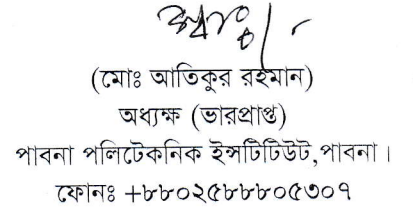 (মোঃ আতিকুর রহমান)
অধ্যক্ষ (ভারপ্রাপ্ত)
পাবনা পলিটেকনিক ইন্সটিটিউট,পাবনা।
ফোনঃ +৮৮০২৫৮৮৮০৫৩০৭